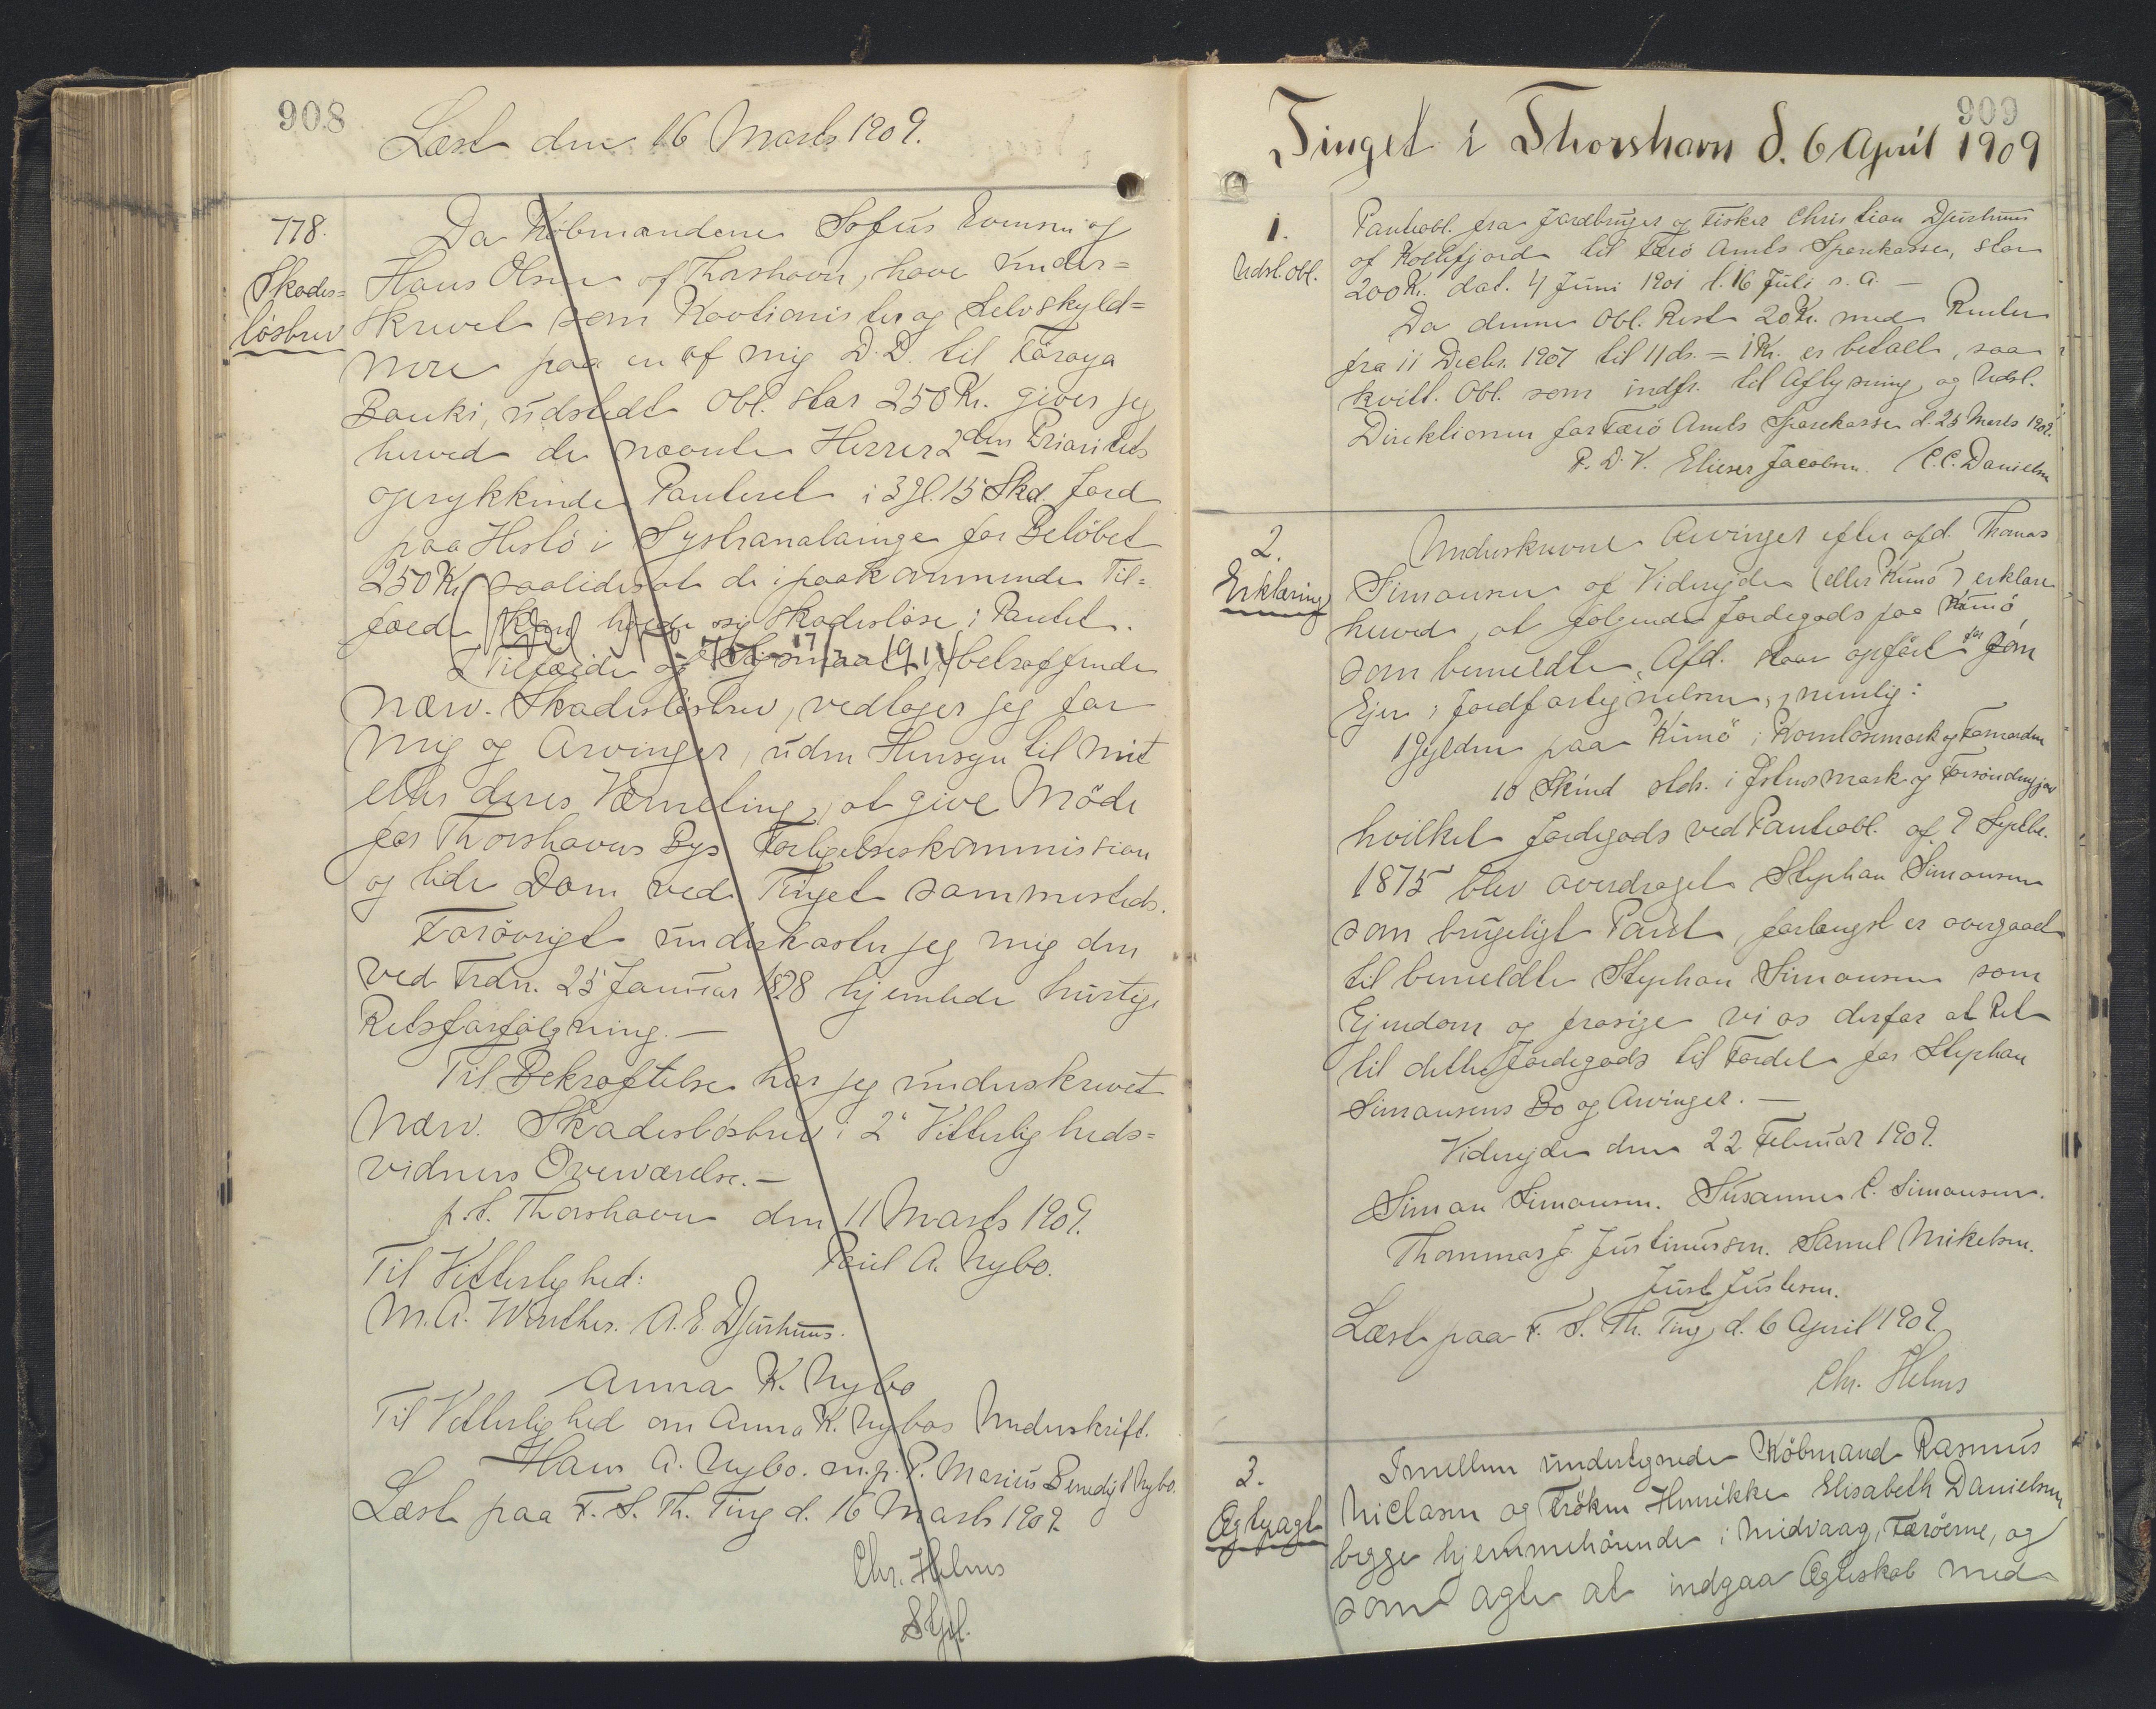 908
Læst den 16 Marts 1909.
778.
Skades=
lösbrev
Da Köbmændene Sofus Evensen og
Hans Olsen af Thorshavn, have under=
skrevet som Kautionister og Selvskyld=
nere paa en af mig D.D. til Föroya
Banki, udstedt Obl. stor 250 Kr. giver jeg
herved de nævnte Herrer 2den Prioritets
oprykkende Panteret i 3 Gl. 15 Skd. Jord
paa Hestö i for Belöbet
250 Kr, saaledes at de i paakommende Til=
fælde kan holde sig skadeslöse i Pantet.
I Tilfælde af Søgsmaal betræffende
nærv. Skadeslösbrev, vedtager jeg for
mig og Arvinger, uden Hensyn til mit
eller deres Værneting, at give Möde
for Thorshavns Bys Forligelseskommission
og lide Dom ved Tinget sammesteds.
Forövrigt underkaster jeg mig den
ved Frdn. 25 Januar 1828 hjemlede hurtige
Retsforfölgning. —
Til Bekræftelse har jeg underskrevet
nærv. Skadeslösbrev i 2 Vitterligheds=
vidners Overværelse. —
p.t. Thorshavn den 11 Marts 1909.
Poul A. Nybo.
Til Vitterlighed:
M.A. Winther. A.E. Djurhuus.
Anna K. Nybo
Til Vitterlighed om Anna K. Nybos Underskrift.
Hans A. Nybo. m.p.P. Marius Benedigt Nybo.
Læst paa F. S. Th. Ting d. 16 Marts 1909.
Chr. Helms
909
Tinget i Thorshavn d. 6 April 1909
1.
Udsl. obl.
Panteobl. fra Jordbruger og Fisker Christian Djurhuus
af Kollefjord til Færö Amts Sparekasse, stor
200 Kr. dat. 4 Juni 1901 t. 16 Juli s. A. —
Da denne Obl. Rest 20 Kr. med Renter
fra 11 Decbr. 1907 til 11 ds. = 1 Kr. er betalt, saa
kvitt. Obl. som indfr. til Aflysning og Udsl.
Direktionen for Færö Amts Sparekasse d. 25 Marts 1909.
P. D. V. Elieser Jacobsen. C.C. Danielsen
2.
Erklæring
Underskrevne Arvinger efter afd. Thomas
Simonsen af Viderejde (eller Kunö) erklære
herved, at følgende Jordegods paa Kunö
som bemeldte Afd. staar opfört for som
Ejer i Jordfortegnelsen, nemlig:
1 Gylden paa Kunö i
10 Skind stds. i
hvilket Jordegods ved Panteobl. af 9 Septbr.
1875 blev overdraget Stephan Simonsen
som brugeligt Pant, forlængst er overgaaet
til bemeldte Stephan Simonsen som
Ejendom og frasige vi os derfor al Ret
til dette Jordegods til Fordel for Stephan
Simonsens Bo og Arvinger. —
Viderejde den 22 Februar 1909.
Simon Simonsen. Susanne C. Simonsen.
Thommas J. Justinussen. Samel Mikelsen.
Just Justesen.
Læst paa F. S. Th. Ting d. 6 April 1909.
Chr. Helms
3.
Ægtepagt
Imellem undertegnede Köbmand Rasmus
Niclasen og Fröken Henrikke Elisabeth Danielsen
begge hjemmehörende i Midvaag, Færöerne, og
som agte at indgaa Ægteskab med